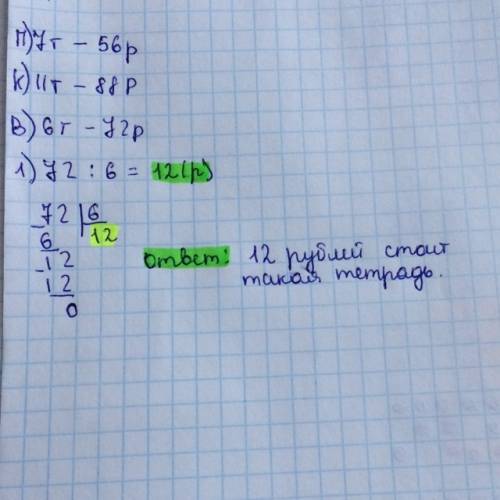 П) 7т - 56р
К) 11т - 88р
В) 6т - 72р
1) 72 : 6 = 12(р)
72 | 6
- 6 | 12
- 12
12
0
ответ: 12 рублей стоит
такая тетрадь.